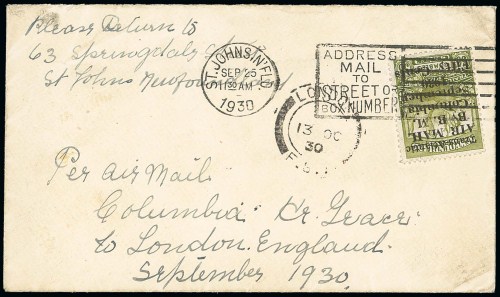 Please Return to
63 Springdale St
St Johns Newfoundland
ST. JOHN'S N'F'L'D
SEP 25
11 30 AM
1930
ADDRESS
MAIL
TO
STREET OR
BOX NUMBER
LONDON
13 OC
30
Trans-Atlantic
AIR MAIL
By B. M.
"Columbia"
September
1930
Fifty Cents
Per Air Mail
Columbia Hr Grace
to London. England.
September 1930.